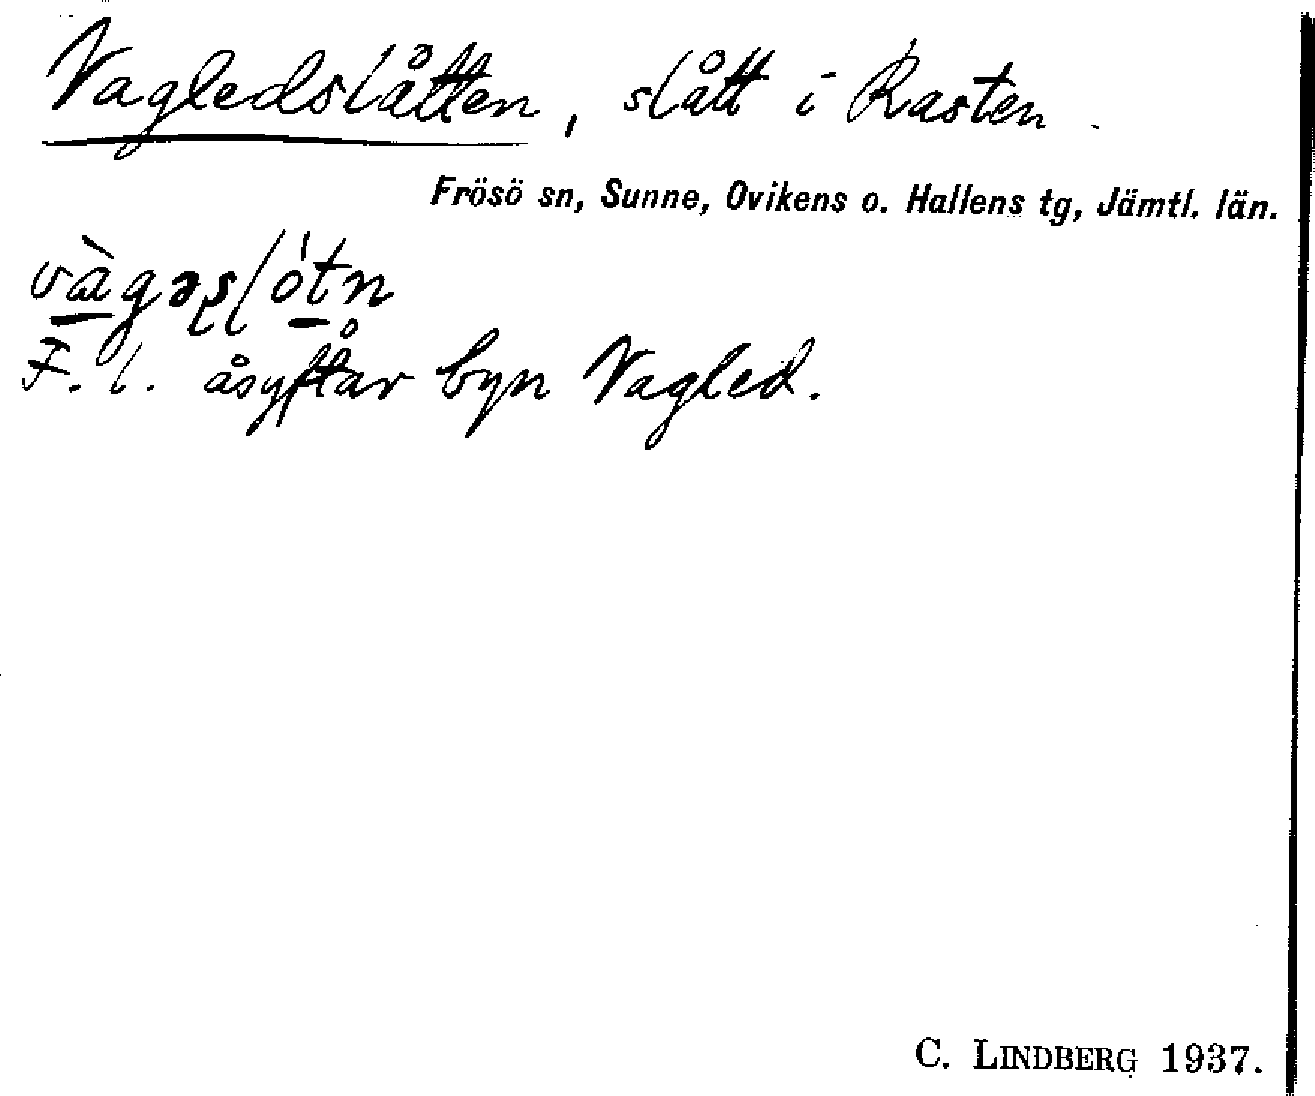 Vagledslåtten, slått i Rasten.
Frösö sn, Sunne, Ovikens o. Hallens tg, Jämtl. län.
F. l. åsyftar byn Vagled.
C. LINDBERG 1937.